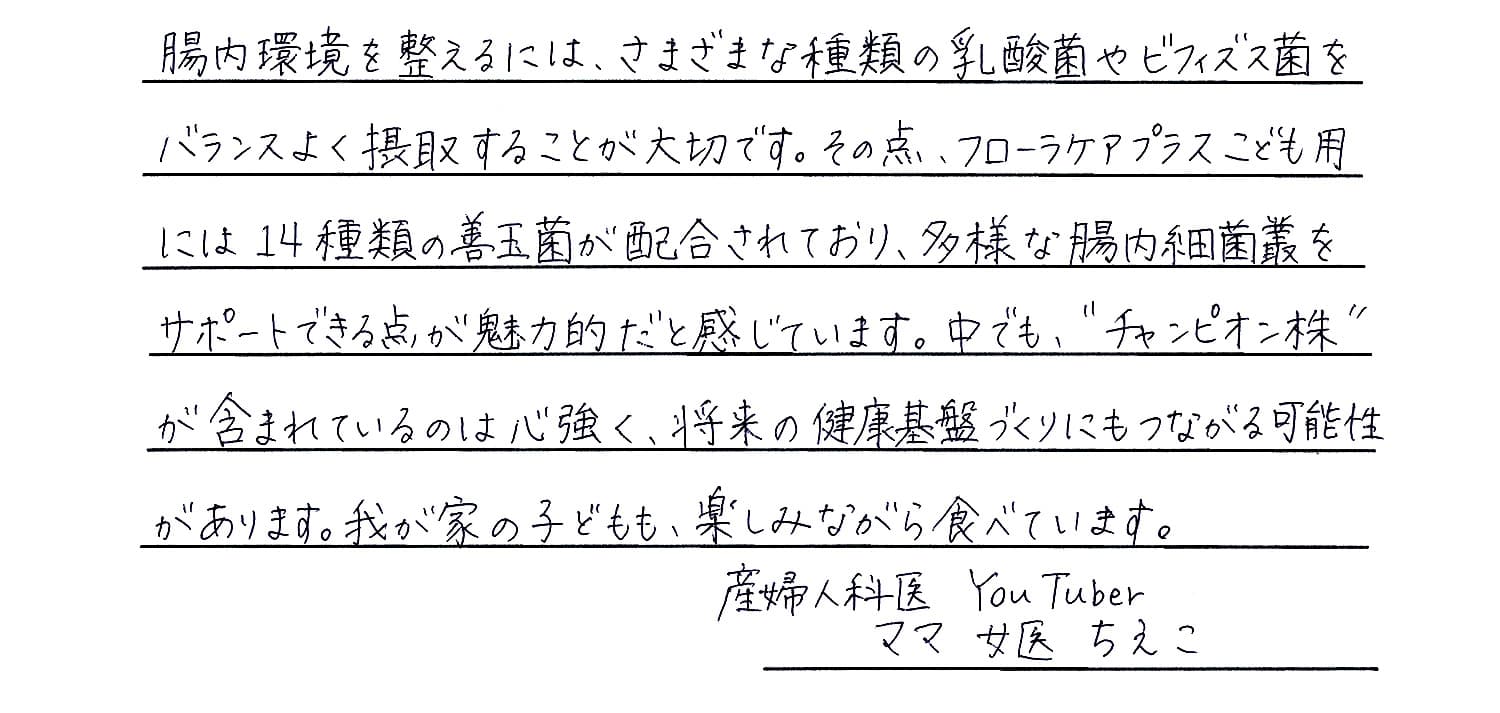 腸内環境を整えるには、さまざまな種類の乳酸菌やビフィズス菌を
バランスよく摂取することが大切です。その点、フローラケアプラスこども用
には14種類の善玉菌が配合されており、多様な腸内細菌叢を
サポートできる点が魅力的だと感じています。中でも、“チャンピオン株”
が含まれているのは心強く、将来の健康基盤づくりにもつながる可能性
があります。我が家の子どもも、楽しみながら食べています。
産婦人科医 YouTuber
ママ 女医 ちえこ